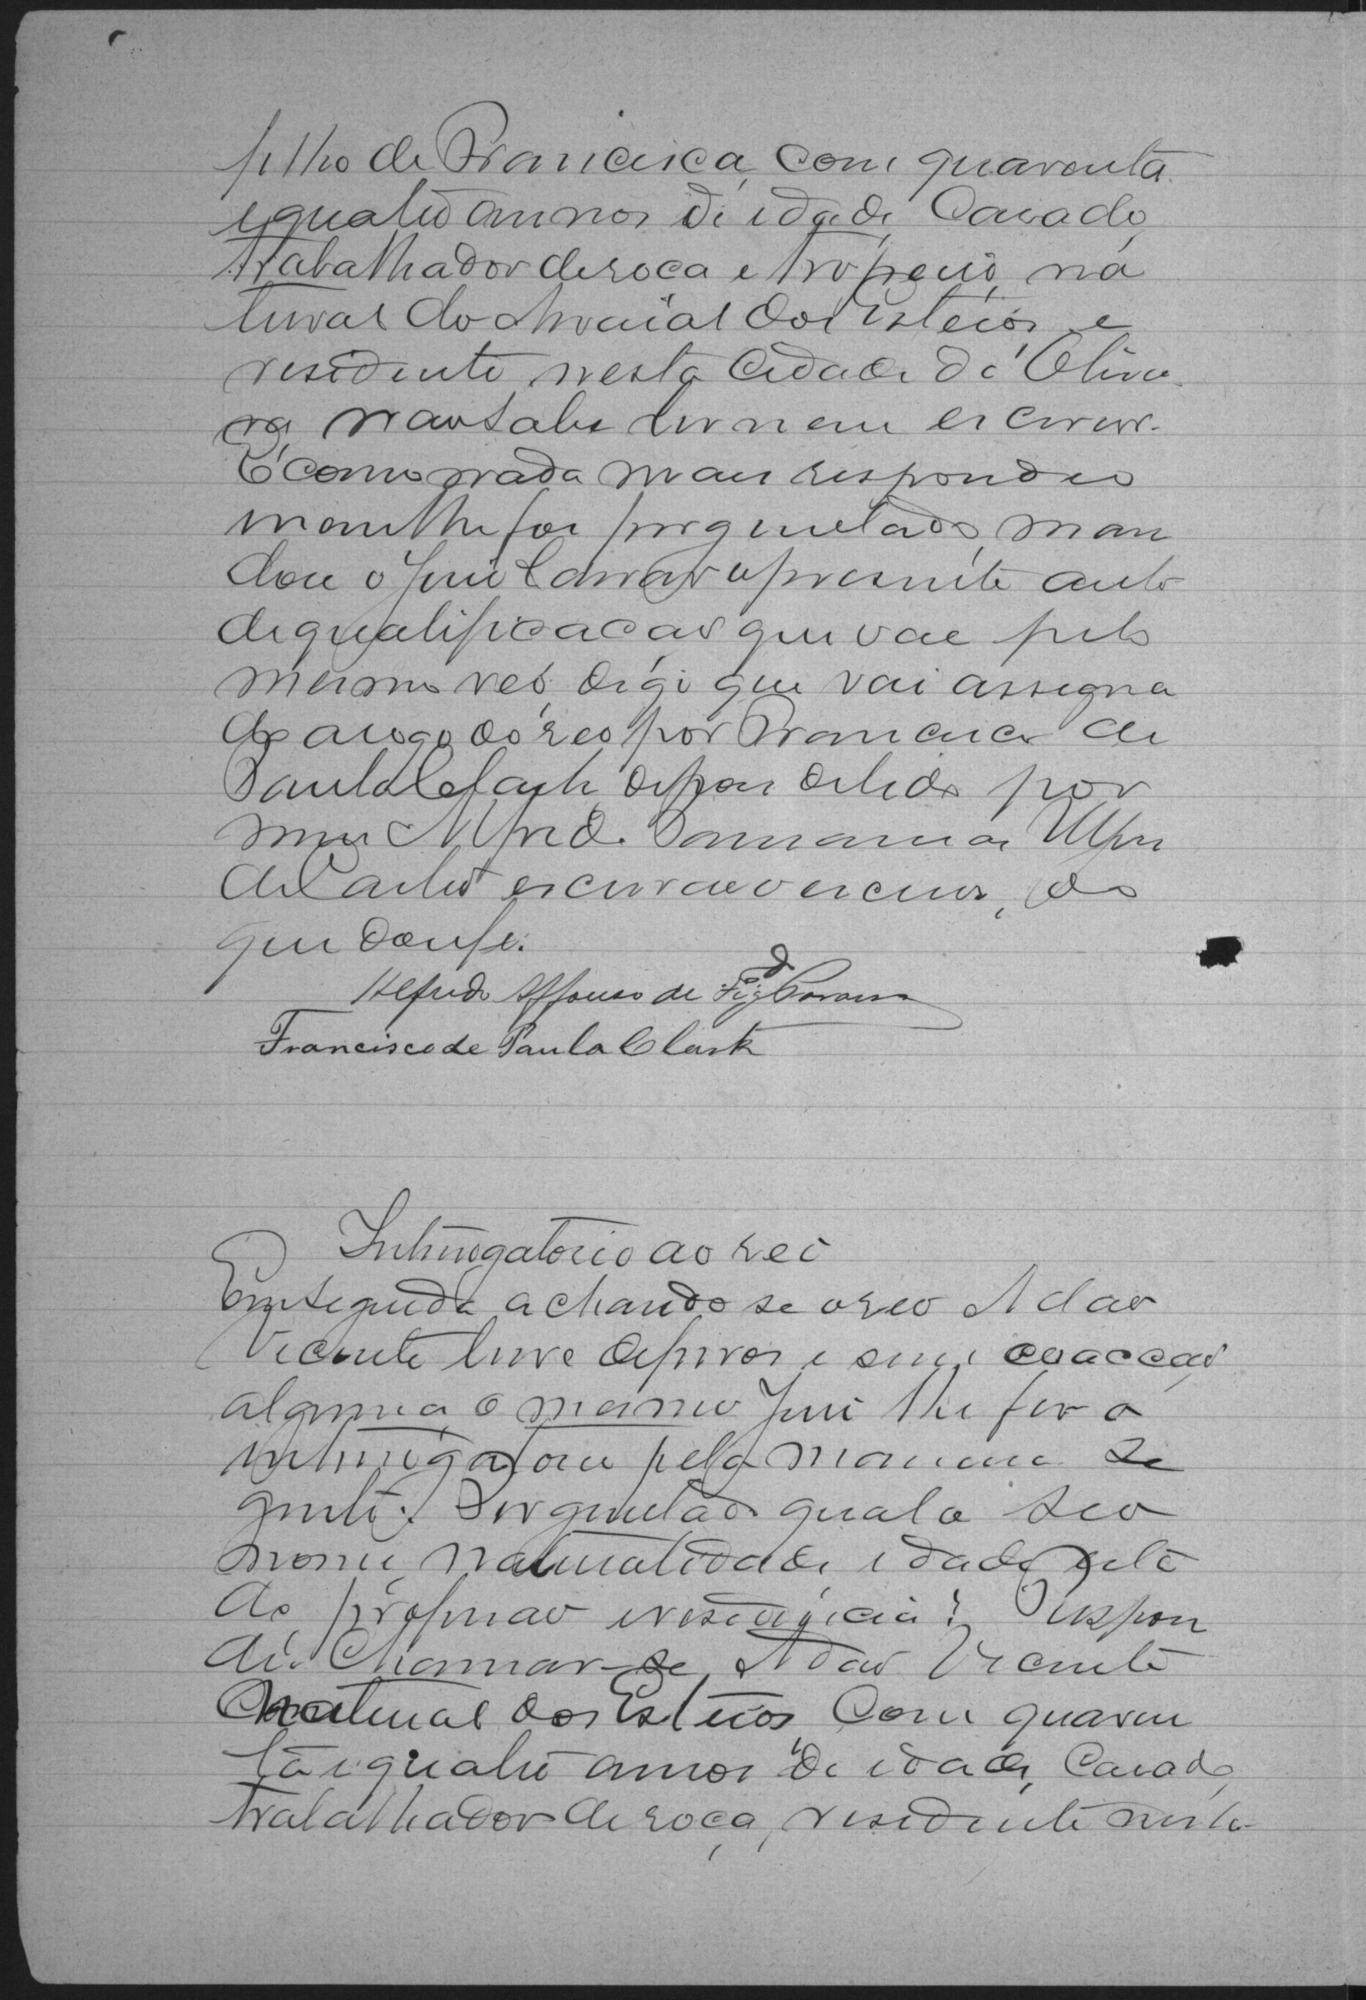 filho de Francisca, com quarenta
e quatro annos de idade, Casado,
trabalhador de roca e tropeiro, na
tural do Arraial dos Esteios, e
residente nesta Cidade de Olivei-
ra, nao sabe ler nem escrever.
E como nada mais respondeo
nem lhe foi perguntado, man
dou o Juiz lavrar o presente auto
de qualificacao que vae pelo
mesmo reo, digo que vai assigna
do arogo do reo por Francisco de
Paula Clark, depois de lido por
mim Alfredo
de Castro escrivao o escrevi, do
que dou fe.
Alfredo Affonso de Figdo
Francisco de Paula Clark
Interrogatorio ao reo
Em seguida achando se o reo Adao
Vicente livre de ferros e sem coaccao
alguma o mesmo Juiz lhe fez o
interrogatorio pela maneira se
guinte. Perguntado qual o seo
nome, naturalidade, idade, esta
do, profissao e residencia? Respon
deo Chamar-se Adao Vicente
natural dos Esteios, Com quaren
ta e quatro annos de idade, Casado,
trabalhador de roça, residente nesta